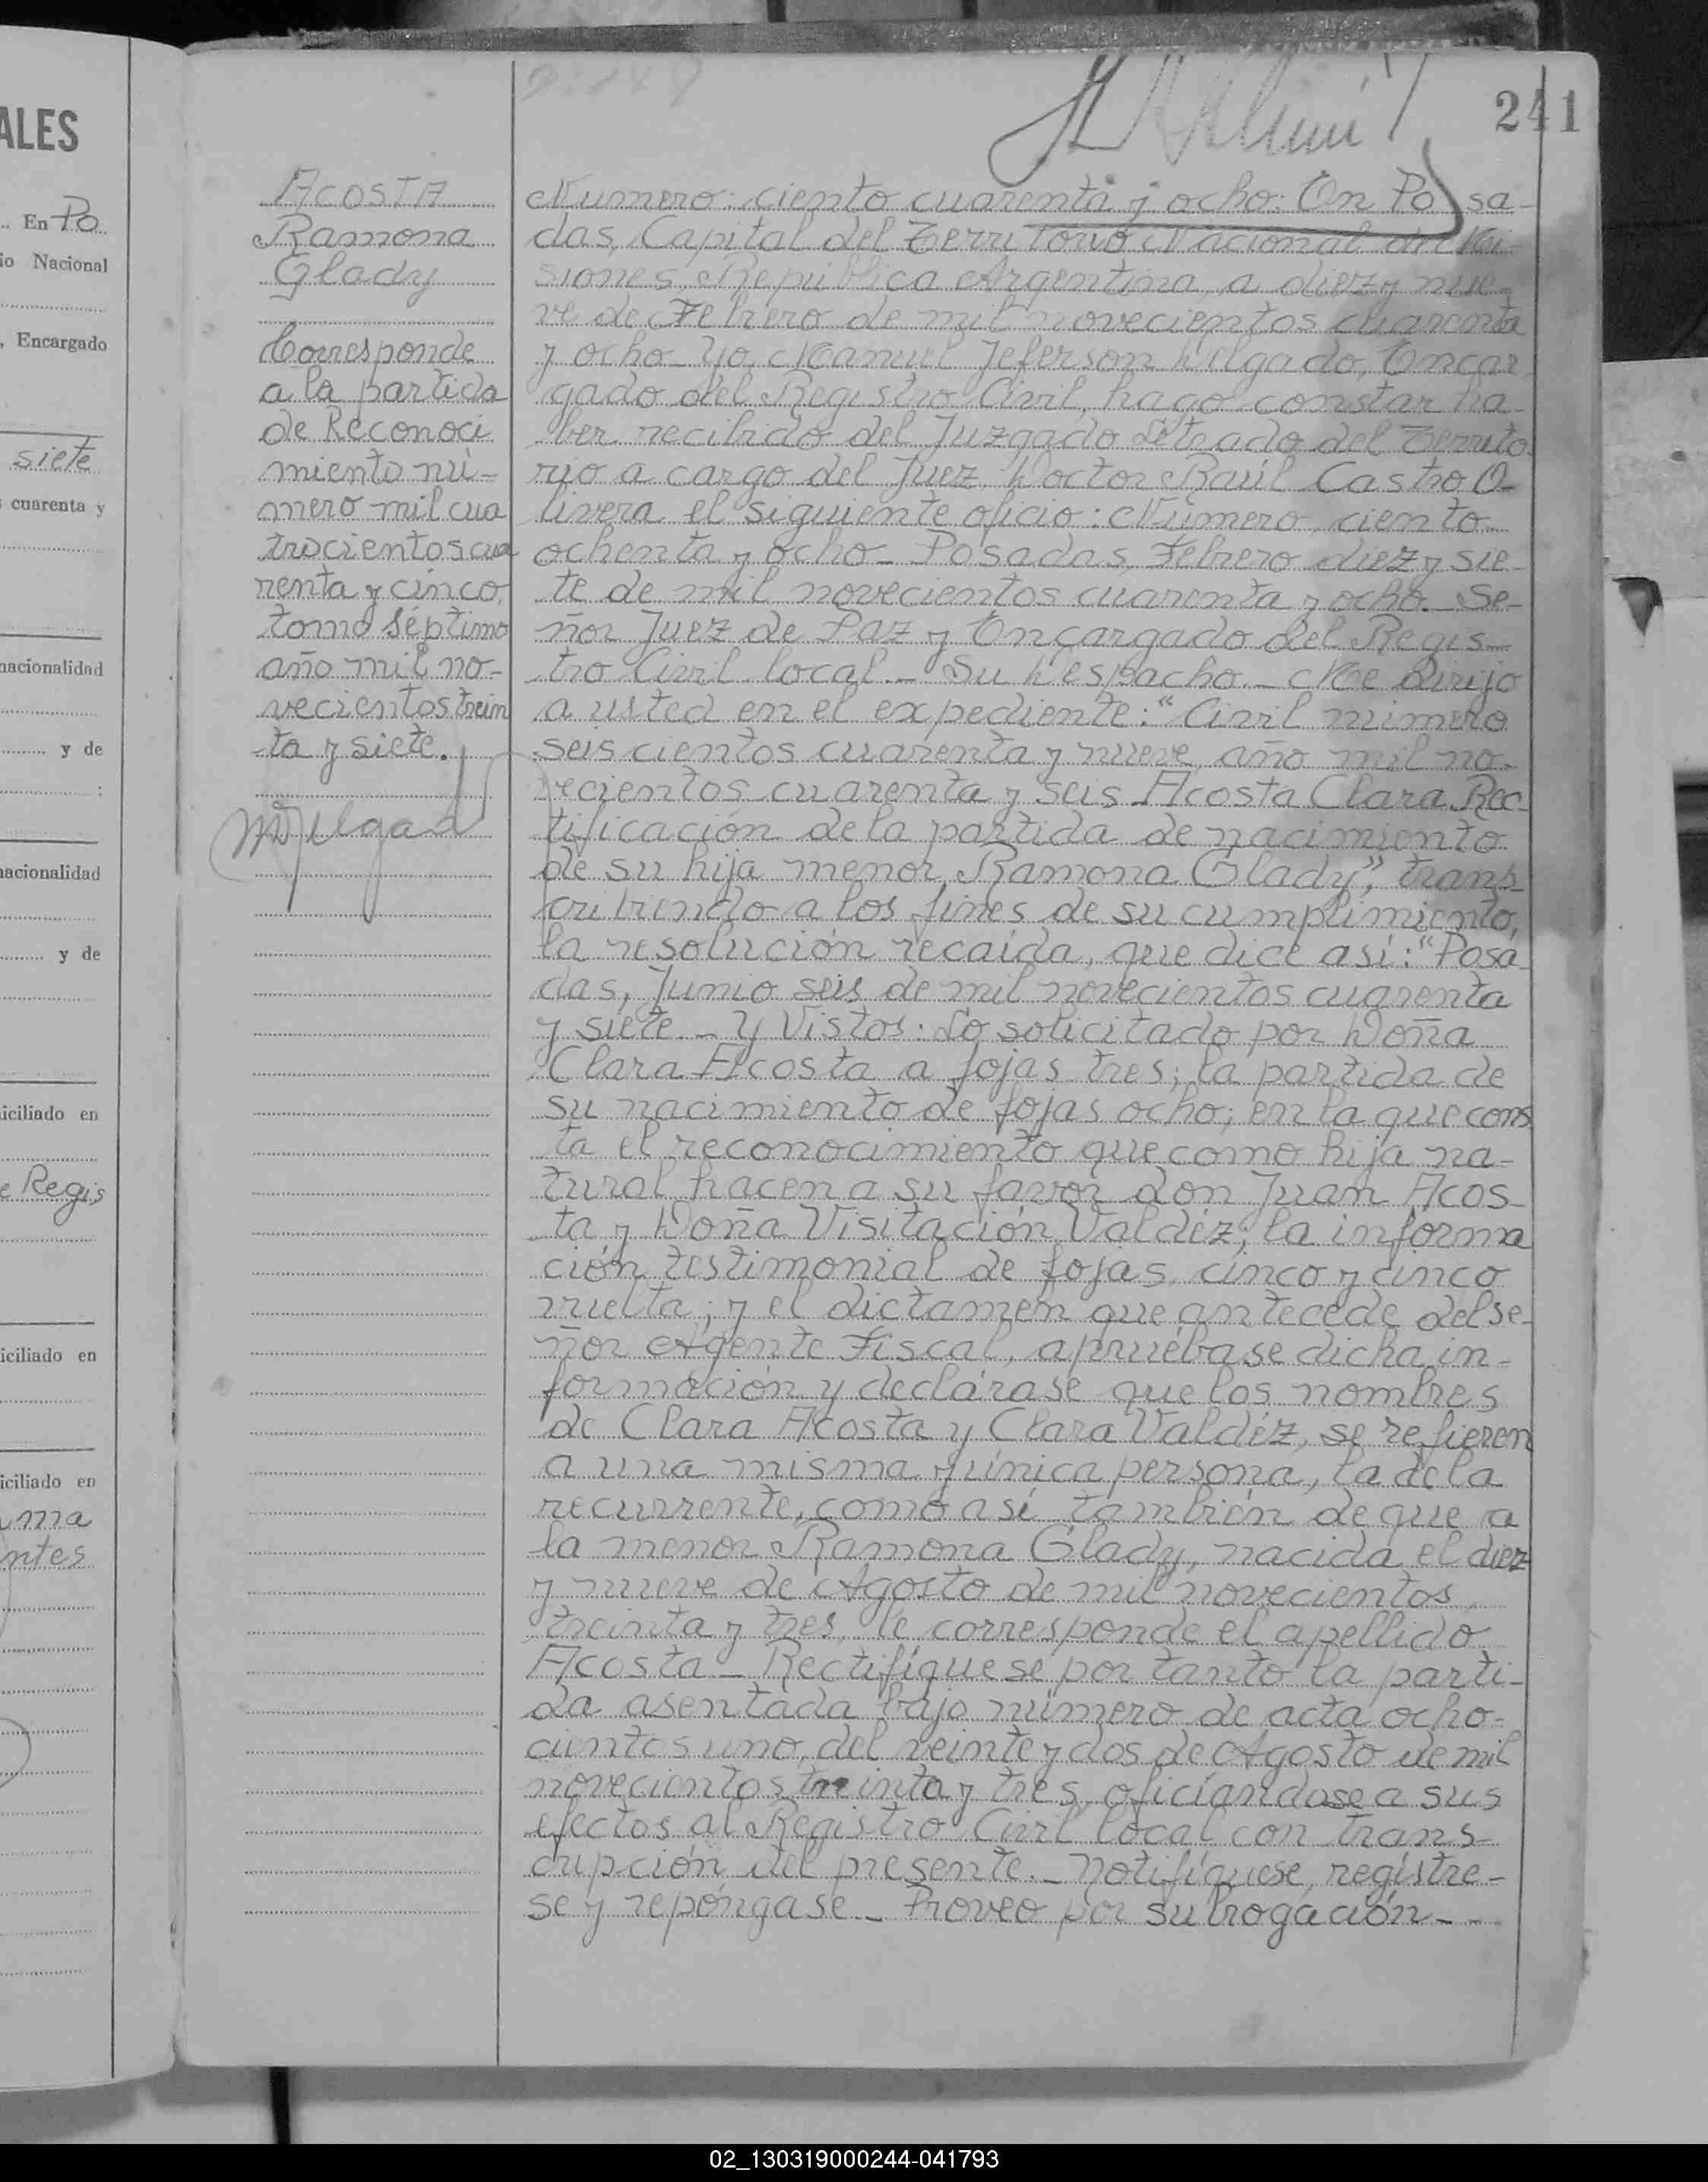 241
ALES
En Po
io Nacional
, Encargado
siete
s cuarenta y
nacionalidad
y de
:
nacionalidad
y de
iciliado en
e Regis
iciliado en
iciliado en
ma
ntes
Acosta
Ramona
Glady
Corresponde
a la partida
de Reconoci
miento nú-
mero mil cua
trocientos cua
renta y cinco,
tomo séptimo
año mil no-
vecientos trein
ta y siete.
Numero: ciento cuarenta y ocho: En Posa-
das, Capital del Territorio Nacional de Mi-
siones, República Argentina, a diez y nue-
ve de Febrero de mil novecientos cuarenta
y ocho- Yo, Manuel Jeferson Delgado, Encar
gado del Registro Civil, hago constar ha-
ber recibido del Juzgado Letrado del Territo
rio a cargo del Juez, Doctor Raúl Castro O-
livera el siguiente oficio: Número, ciento
ochenta y ocho- Posadas, Febrero diez y sie-
te de mil novecientos cuarenta y ocho.- Se-
ñor Juez de Paz y Encargado del Regis-
tro Civil local.- Su Despacho.- Me dirijo
a usted en el expediente: "Civil número
seiscientos cuarenta y nueve, año mil no-
vecientos cuarenta y seis Acosta Clara Rec-
tificación de la partida de nacimiento
de su hija menor, Ramona Glady", trans-
cribiendo a los fines de su cumplimiento,
la resolución recaída, que dice así: "Posa
das, Junio seis de mil novecientos cuarenta
y siete.- Y Vistos: Lo solicitado por Doña
Clara Acosta a fojas tres; la partida de
su nacimiento de fojas ocho; en la que cons
ta el reconocimiento que como hija na-
tural hacen a su favor don Juan Acos-
ta y Doña Visitación Valdéz; la informa
ción testimonial de fojas cinco y cinco
vuelta; y el dictamen que antecede del se-
ñor Agente Fiscal, apruébase dicha in-
formación y declárase que los nombres
de Clara Acosta y Clara Valdéz, se refieren
a una misma y única persona, la de la
recurrente, como así también de que a
la menor Ramona Glady, nacida el diez
y nueve de Agosto de mil novecientos
treinta y tres, le corresponde el apellido
Acosta- Rectifíquese por tanto la parti-
da asentada bajo número de acta ocho-
cientos uno, del veinte y dos de Agosto de mil
novecientos treinta y tres, oficiándose a sus
efectos al Registro Civil local con trans-
cripción del presente.- Notifíquese, regístre-
se y repóngase- Proveo por subrogación--
02_130319000244-041793